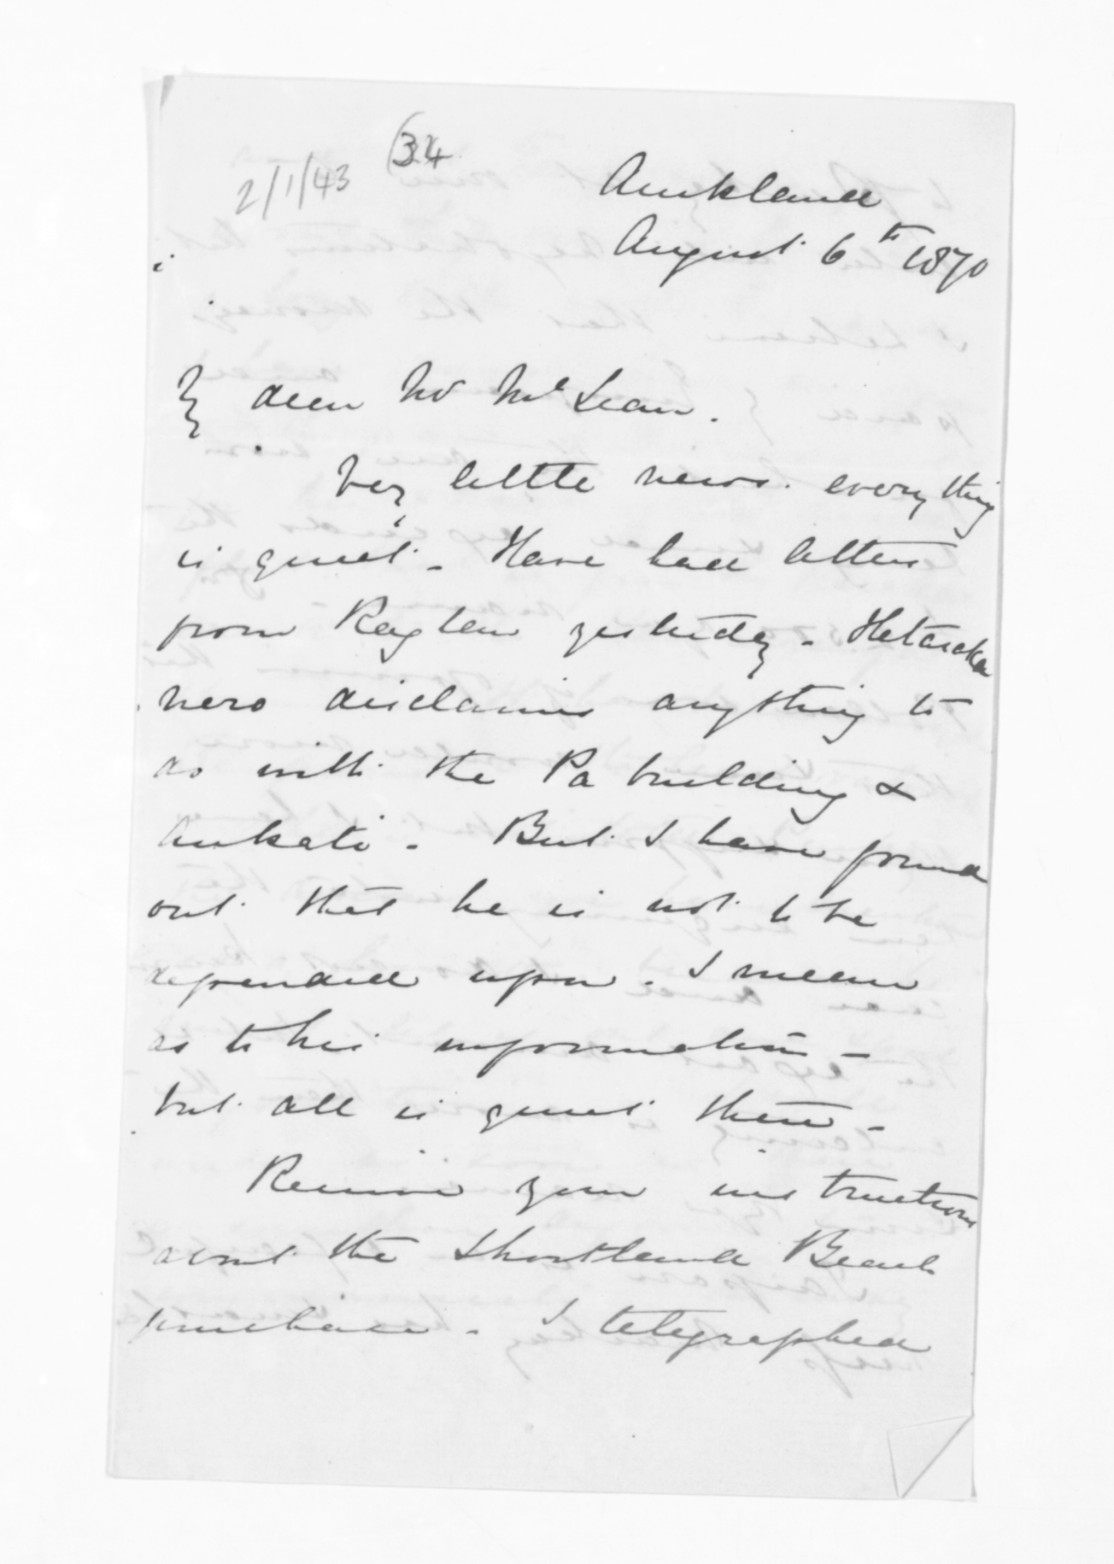 (34
2/1/43
Auckland
August 6th 1870
My dear Mr McLean.
Very little news. everything
is quiet - Have had letters
from Raglan yesterday - Hetaraka
nero disclaims anything to
do with the Pa building &
Aukati - But I have found
out that he is not to be
depended upon. I mean
as to his information -
but all is quiet there -
Receive your instructions
about the Shortland Beach
purchase - I telegraphed